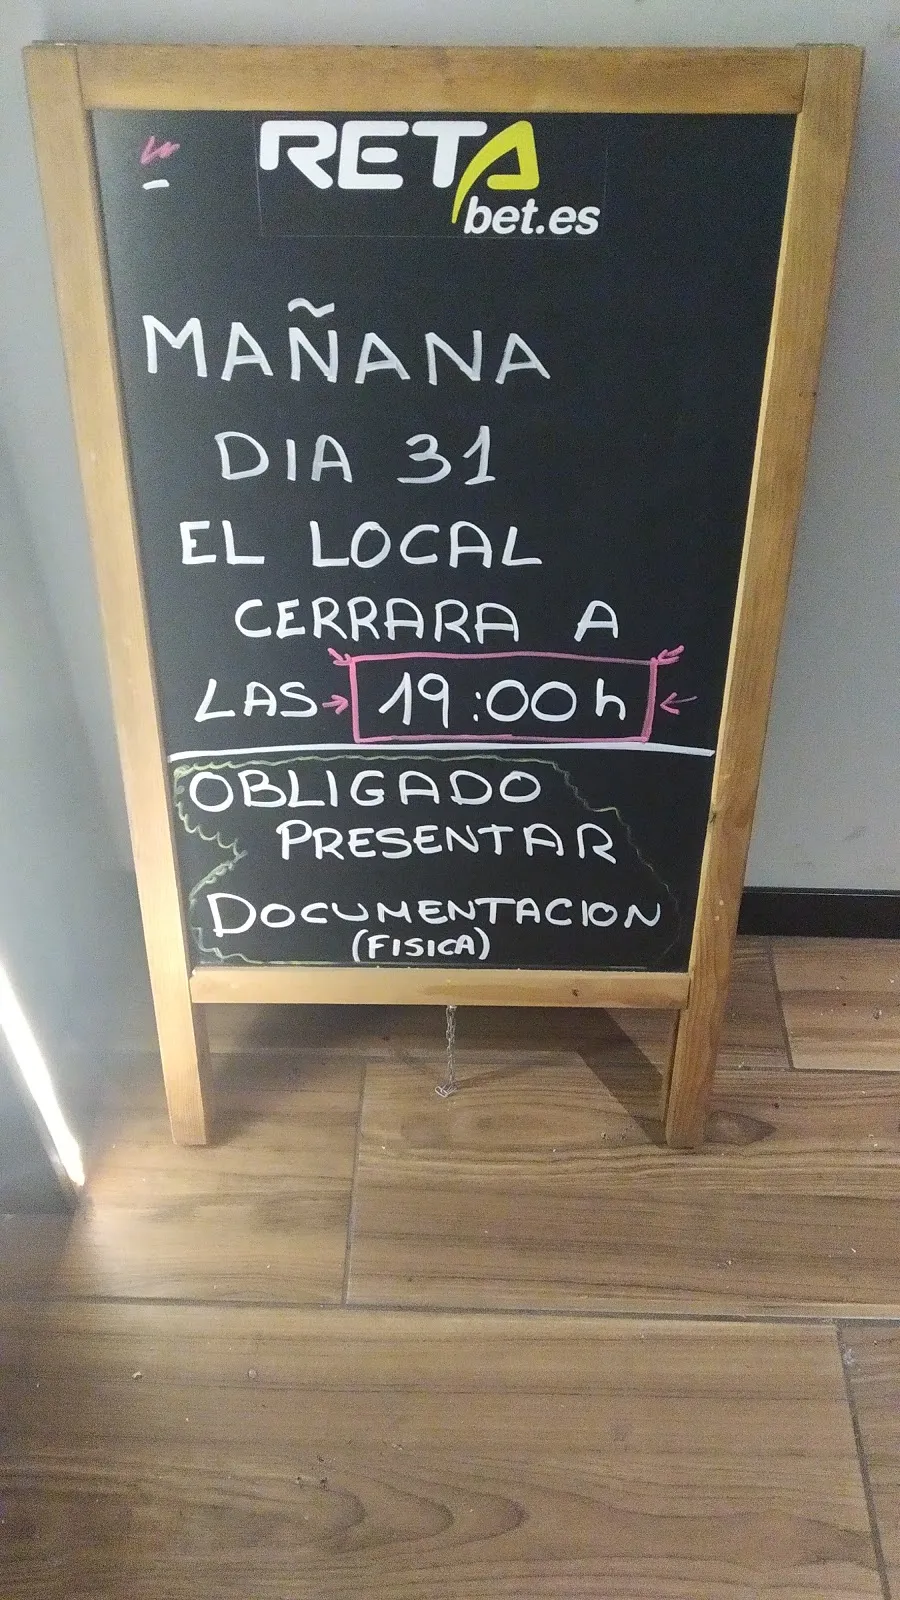 RETA
bet.es
MAÑANA
DIA 31
EL LOCAL
CERRARA A
LAS 19:00h
OBLIGADO
PRESENTAR
DOCUMENTACION
(FISICA)